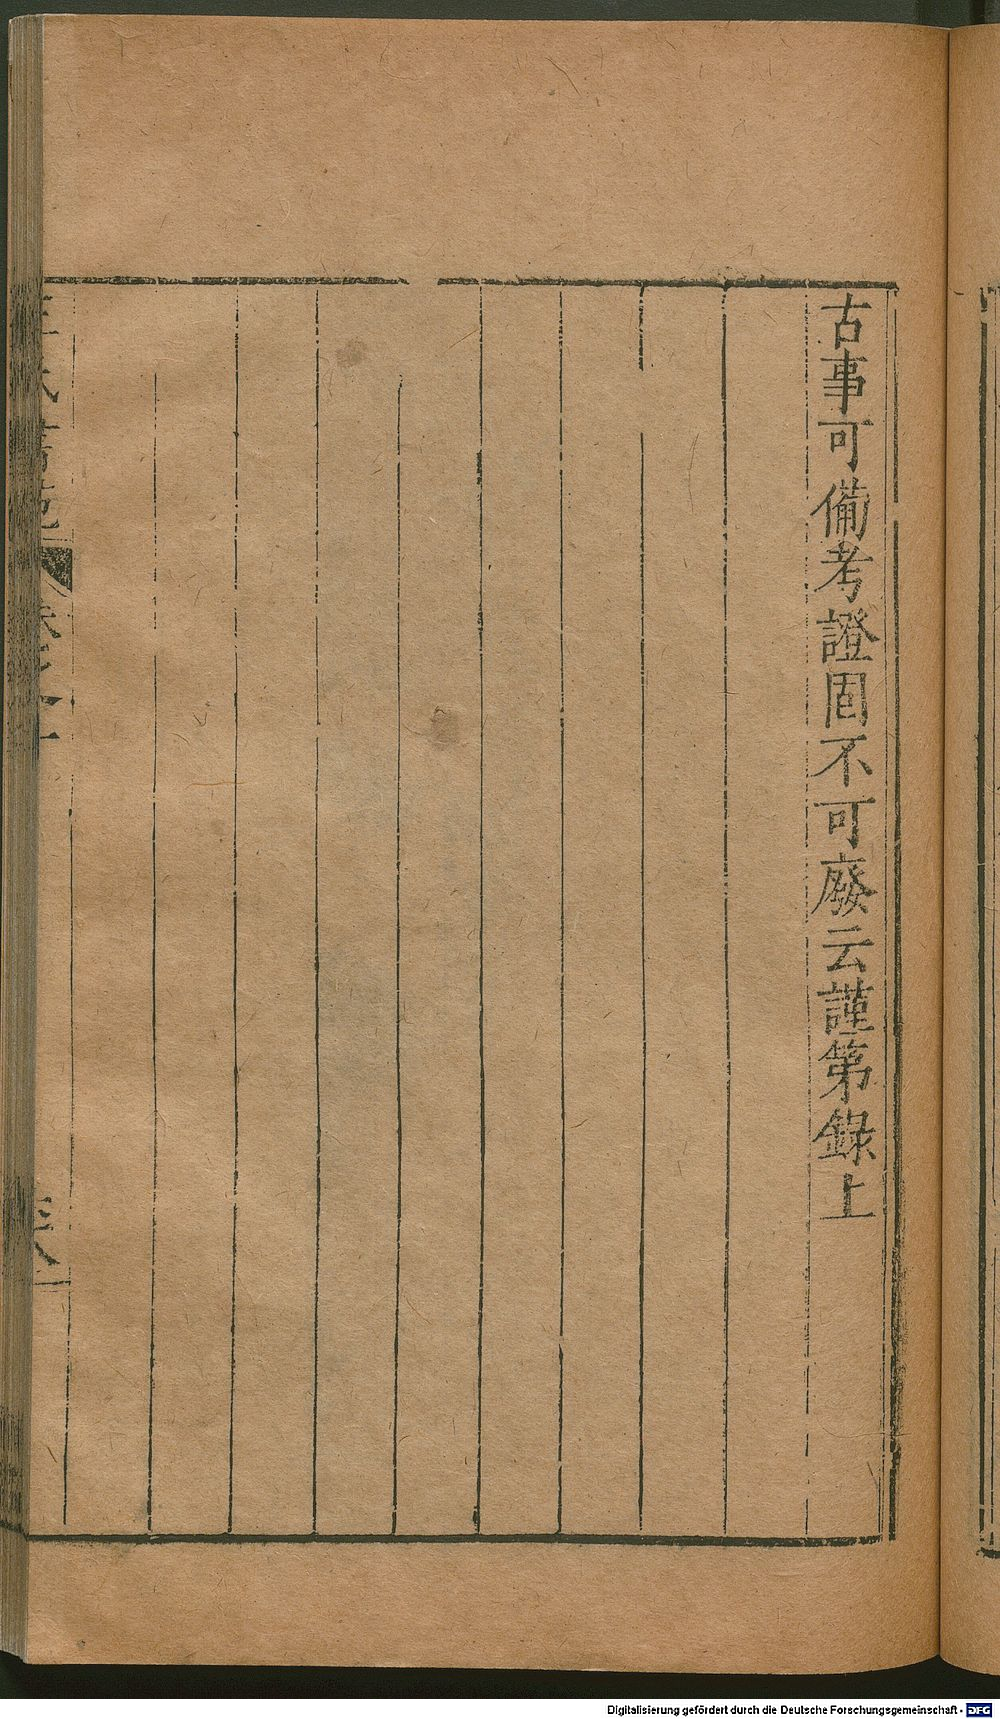 古事可備考證固不可廢云謹第錄上
Digitalisierung gefördert durch die Deutsche Forschungsgemeinschaft - DFG